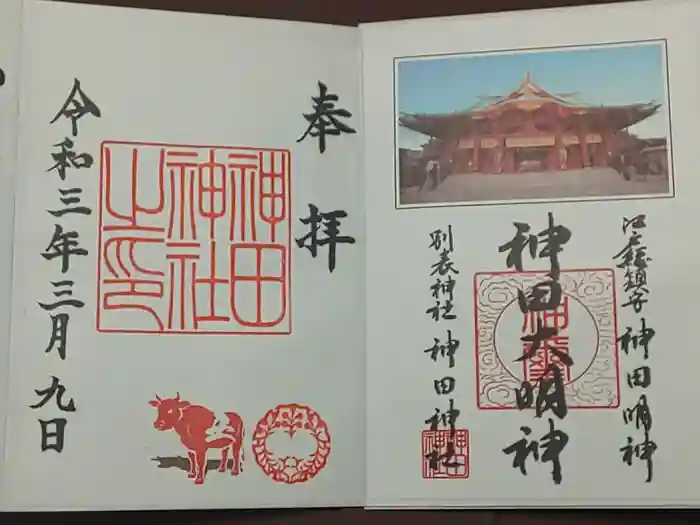 奉拝
神田
神社
之印
令和三年三月九日
江戸総鎮守 神田明神
神田大明神
別表神社 神田神社
神田
神社